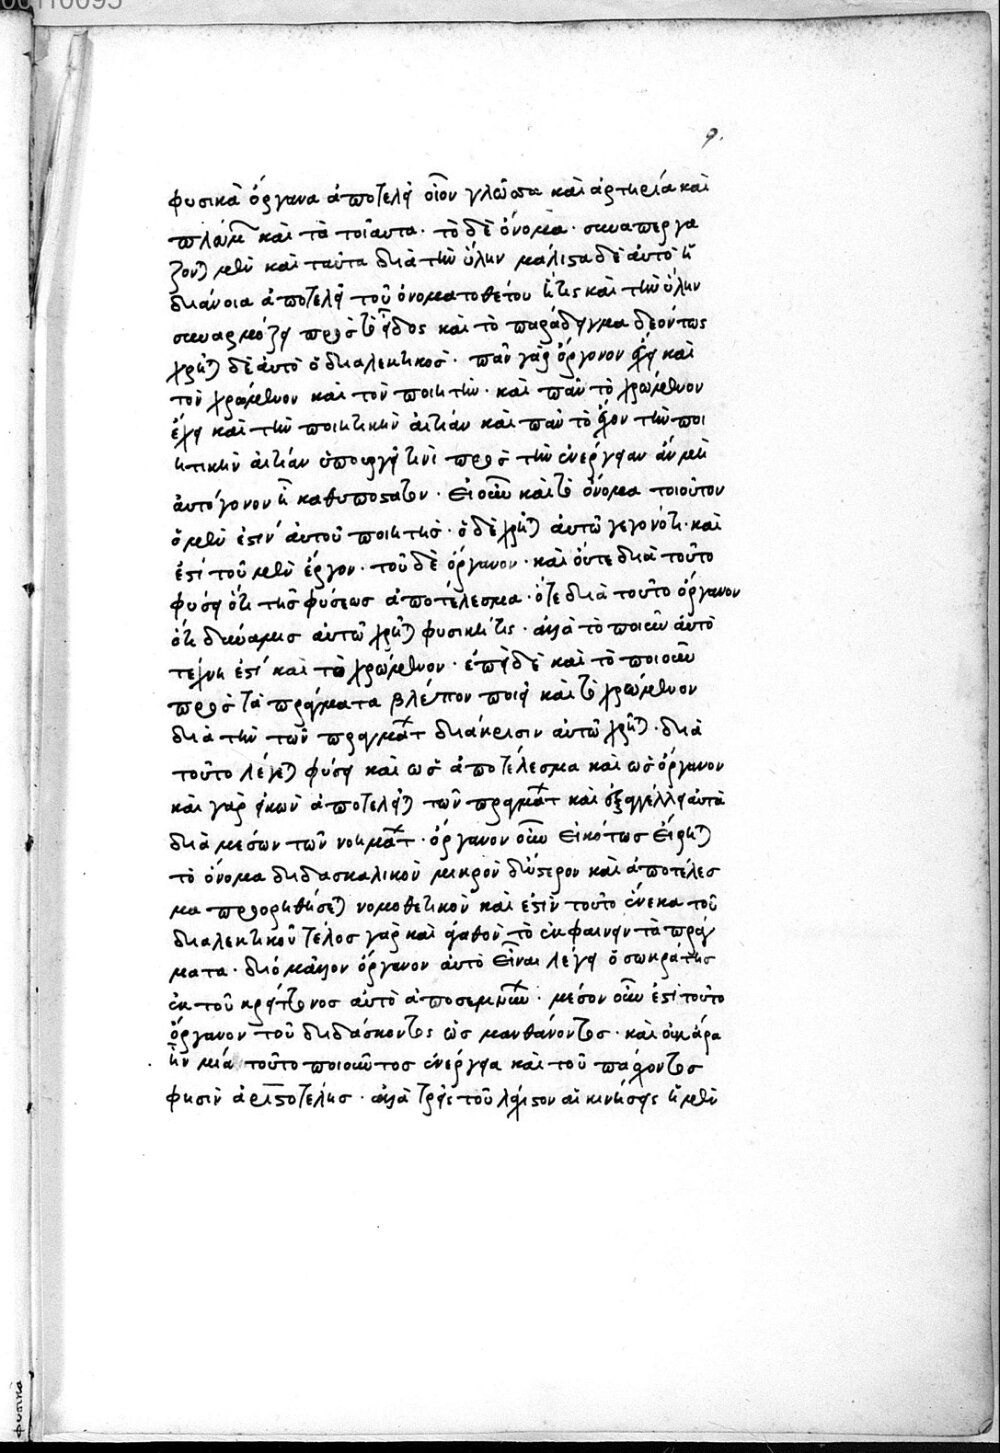 00110095
9.
φυσικὰ ὄργανα ἀποτελεῖ οἷον γλῶσσα καὶ ἀρτηρία καὶ
πλεύμ καὶ τὰ τοιαῦτα· τὸ δὲ ὄνομα· συναπεργα
ζον) μὲν καὶ ταῦτα διὰ τὴν ὕλην μάλιστα δὲ αὐτὸ ἡ
διάνοια ἀποτελεῖ τοῦ ὀνοματοθέτου ἥτις καὶ τὴν ὕλην
συναρμόζει πρὸς τὸ εἶδος καὶ τὸ παράδειγμα δεόντως
χρῆ) δὲ αὐτὸ ὁ διαλεκτικός· πᾶν γὰρ ὄργανον ἔχει καὶ
τὸν χρώμενον καὶ τὸν ποιητὴν· καὶ πᾶν τὸ χρώμενον
ἔχει καὶ τὴν ποιητικὴν αἰτίαν καὶ πᾶν τὸ ἔχον τὴν ποι
ητικὴν αἰτίαν ὑπουργεῖ τινὶ πρὸς τὴν ἐνέργειαν ἂν μὴ
αὐτόγονον ἢ καθυπόστατον· εἰ οὖν καὶ τὸ ὄνομα τοιοῦτον
ὁ μὲν ἐστὶν αὐτοῦ ποιητής· ὁ δὲ χρῆ) αὐτῶ γεγονότι· καὶ
ἐστὶ τοῦ μὲν ἔργον· τοῦ δὲ ὄργανον· καὶ οὔτε διὰ τοῦτο
φύσει ὅτι τῆς φύσεως ἀποτέλεσμα· οὔτε διὰ τοῦτο ὄργανον
ὅτι δύναμις αὐτῶ χρῆ) φυσική τις· ἀλλὰ τὸ ποιοῦν αὐτὸ
τέχνη ἐστί καὶ τὸ χρώμενον· ἐπεὶ δὲ καὶ τὸ ποιοῦν
πρὸς τὰ πράγματα βλέπον ποιεῖ καὶ τὸ χρώμενον
διὰ τὴν τῶν πραγμάτ διάκρισιν αὐτῶ χρῆ)· διὰ
τοῦτο λέγε) φύσει καὶ ὡς ἀποτέλεσμα καὶ ὡς ὄργανον
καὶ γὰρ εἰκὼν ἀποτελεῖ) τῶν πραγμάτ καὶ ἐξαγγέλλει αὐτὰ
διὰ μέσων τῶν νοημάτ· ὄργανον οὖν εἰκότως εἴρη)
τὸ ὄνομα διδασκαλικὸν μικρὸν δὕστερον καὶ ἀποτέλεσ
μα προρηθήσε) νομοθετικὸν καὶ ἐστὶν τοῦτο ἕνεκα τοῦ
διαλεκτικοῦ τέλος γὰρ καὶ ἀγαθὸν τὸ ἐκφαίνειν τὰ πράγ
ματα· διὸ μᾶλλον ὄργανον αὐτὸ εἶναι λέγει ὁ σωκράτης
ἐκ τοῦ κρείττονος αὐτὸ ἀποσεμνῦν· μέσον οὖν ἐστὶ τοῦτο
ὄργανον τοῦ διδάσκοντος ὡς μανθάνοντος· καὶ οὐκ ἄρα
ἦν μία τοῦτο ποιοῦντος ἐνέργεια καὶ τοῦ πάσχοντος
φησὶν ἀριστοτέλης· ἀλλὰ τρεῖς τοῦ λάχιστον αἱ κινήσεις ἡ μὲν
φυσικὰ